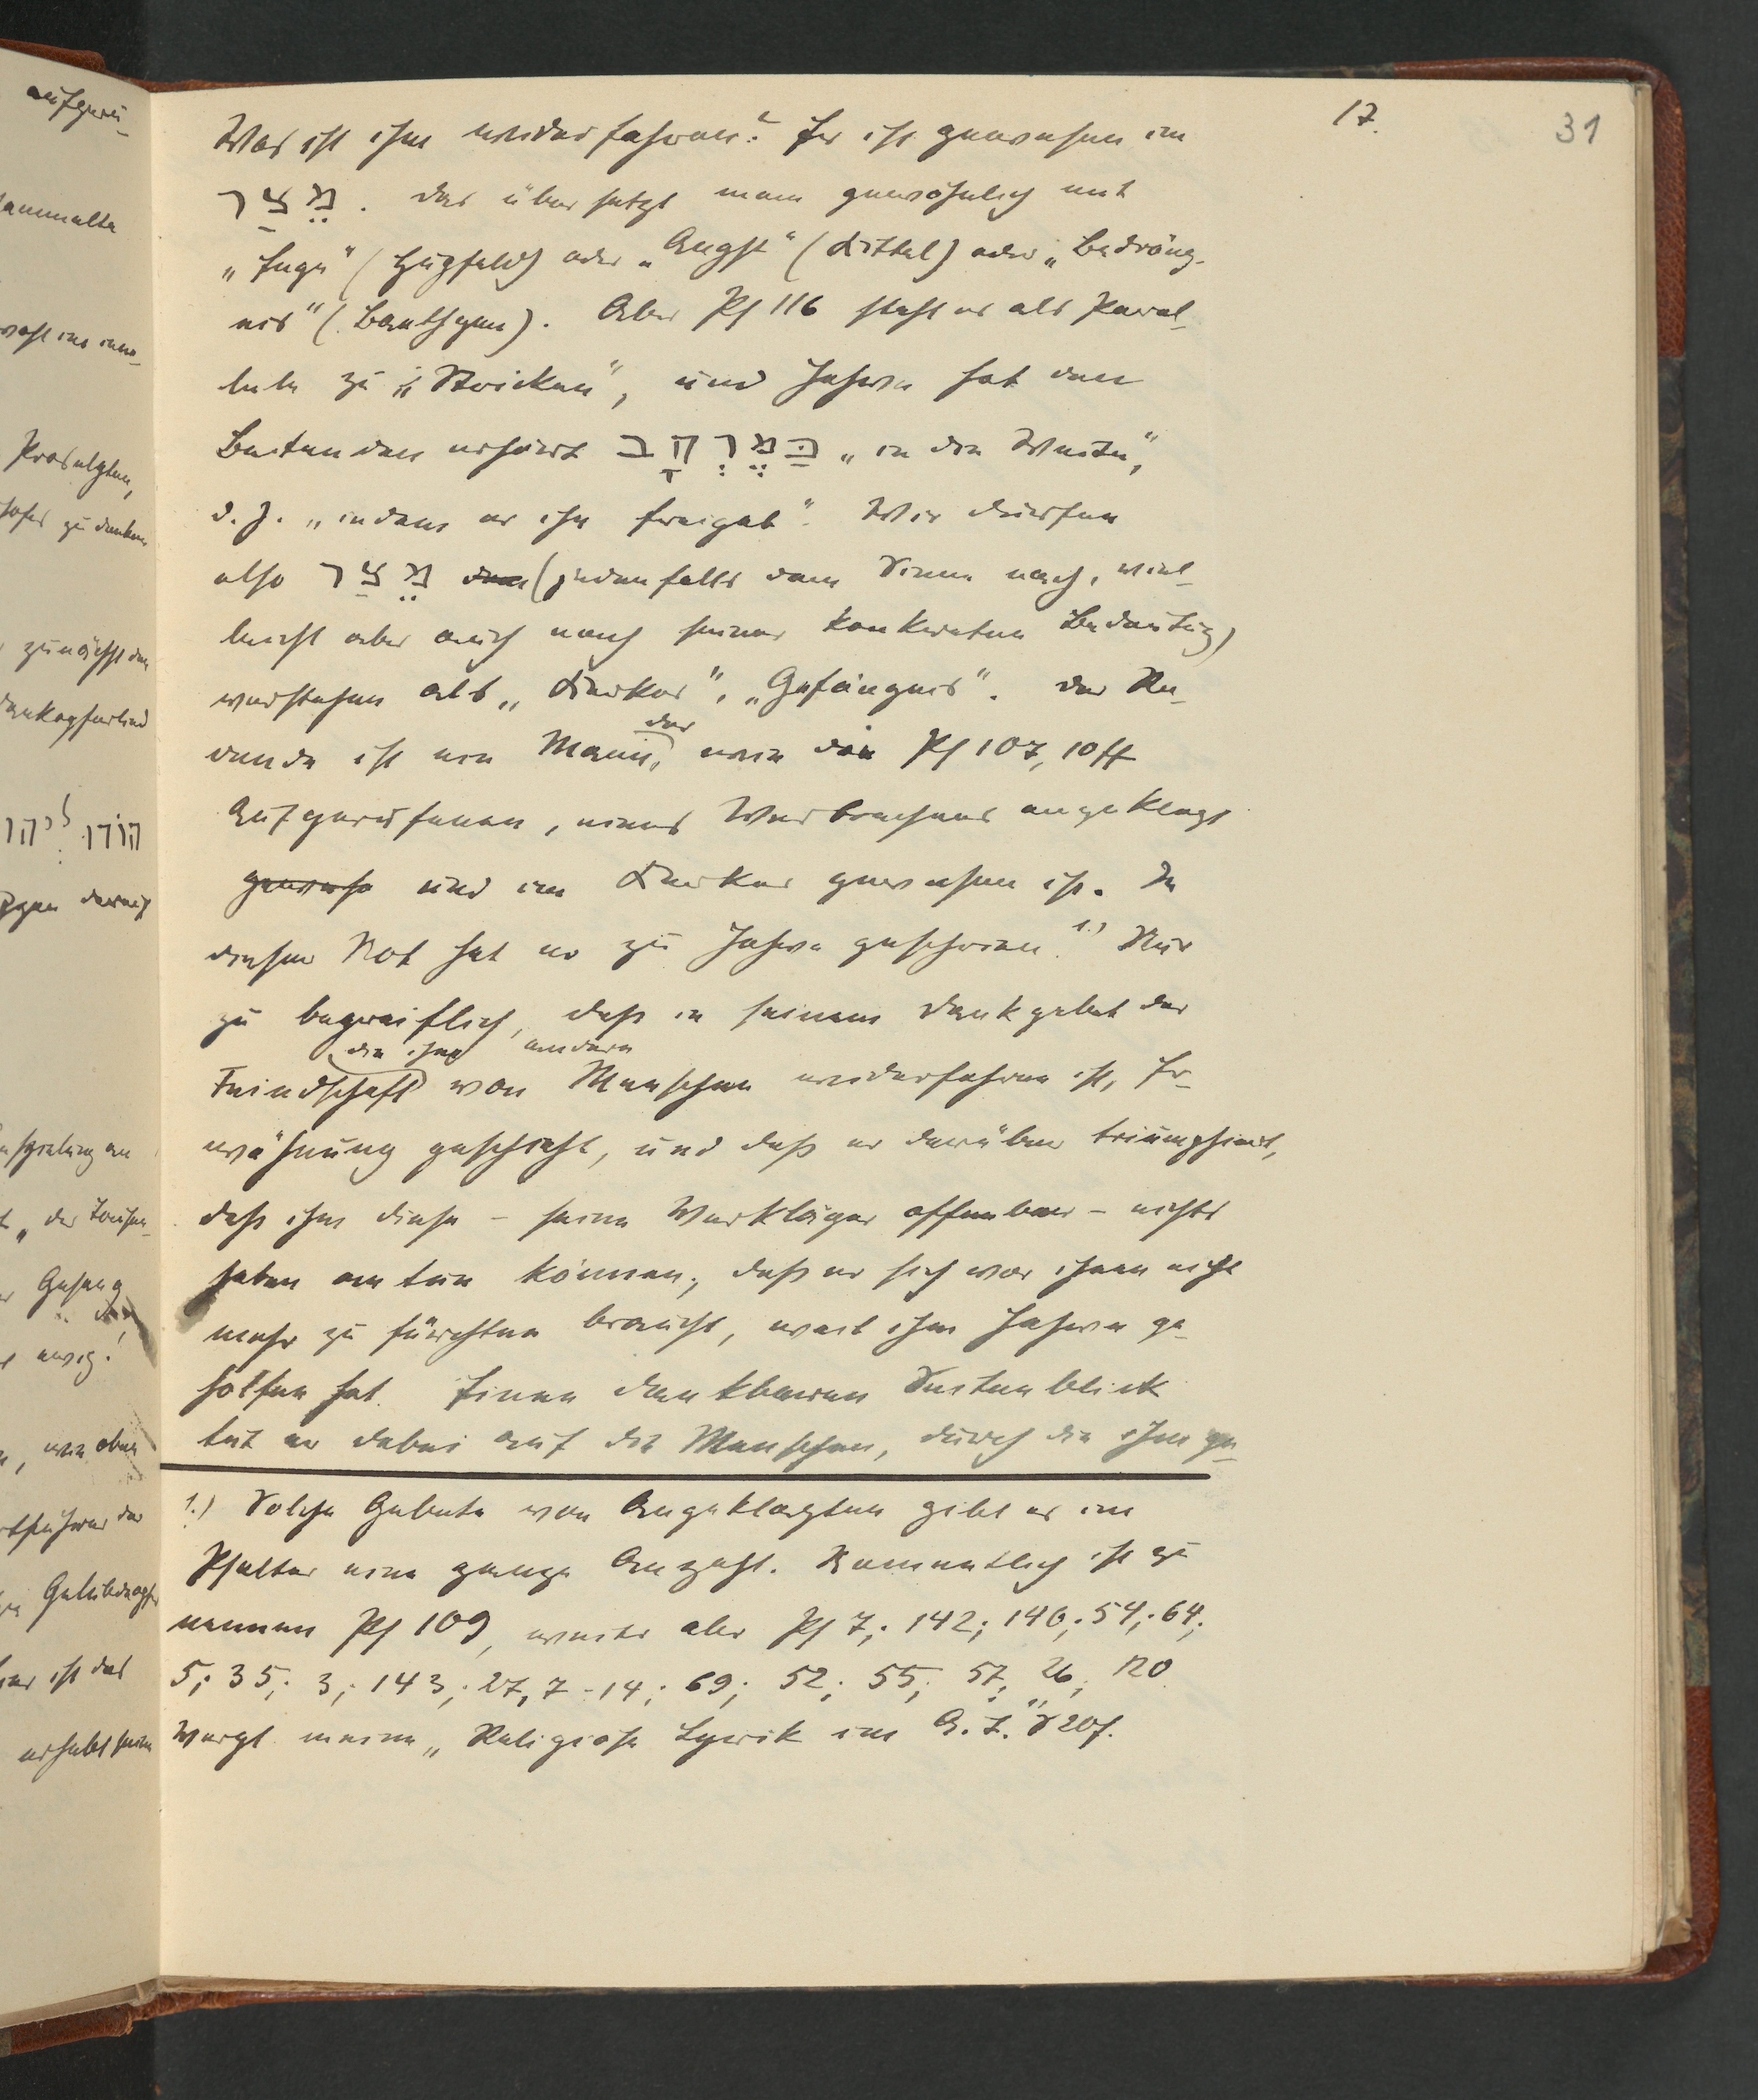 17.
31
Was ist ihm widerfahren? Er ist gewesen im
מֵצַר. Das übersetzt man gewöhnlich mit
„Enge" (Hupfeld) oder „Angst" (Kittel) oder „Bedräng-
nis" (Baethgen). Aber Ps 116 steht es als Paral-
lele zu „Stricken", und Jahwe hat den
Betenden erhört בַּמֶּרְחָב „in die Weite",
d. h. „indem er ihn freigab". Wir dürfen
also מֵצַר (jedenfalls dem Sinne nach, viel-
leicht aber auch nach seiner konkreten Bedeutung)
verstehen als „Kerker", „Gefängnis". Der Re-
dende ist ein Mann, der wie die Ps 107, 10 ff
Aufgerufenen, eines Verbrechens angeklagt
gewese und im Kerker gewesen ist. In
dieser Not hat er zu Jahwe geschrien. 1.) Nur
zu begreiflich, daß in seinem Dankgebet der
Feindschaft, die ihm von andern Menschen widerfahren ist, Er-
wähnung geschieht, und daß er darüber triumphiert,
daß ihm diese – seine Verkläger offenbar – nichts
haben antun können, daß er sich vor ihnen nicht
mehr zu fürchten braucht, weil ihm Jahwe ge-
holfen hat. Einen dankbaren Seitenblick
tut er dabei auf die Menschen, durch die ihm ge-
1.) Solche Gebete von Angeklagten gibt es im
Psalter eine ganze Anzahl. Namentlich ist zu
nennen Ps 109, weiter aber Ps 7; 142; 140; 54; 64;
5; 35; 3; 143; 27, 7-14; 69; 52; 55; 57; 26; 120.
Vergl. meine „Religiöse Lyrik im A. T." S 20f.